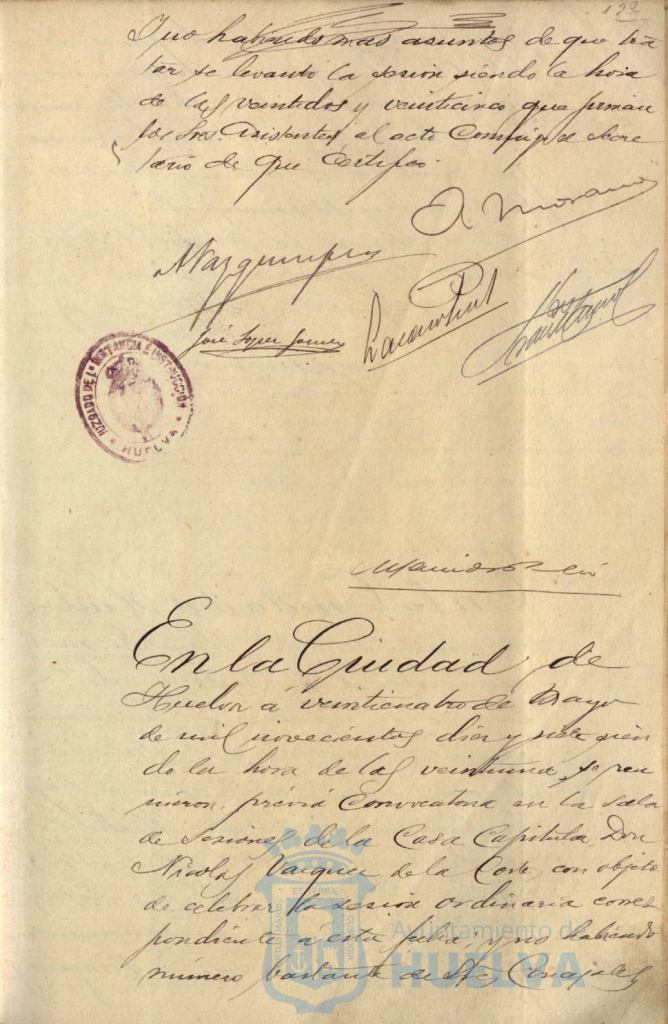 132
Y no habiendo mas asuntos de que tra
tar se levantó la sesion siendo la hora
de las veintidos y veinticinco que firman
los Sres. Asistentes al acto Conmigo el Secre
tario de que Certifico.
A. Moreno
N Vazquez
José Lopez Gomez
JUZGADO DE 1ª INSTANCIA E INSTRUCCION
* HUELVA *
En la Ciudad de
Huelva á veinticuatro de Mayo
de mil novecientos diez y siete sien
do la hora de las veintiuna, se reu
nieron, prévia Convocatoria en la sala
de Sesiones de la Casa Capitular, Don
Nicolas Vazquez de la Corte, con objeto
de celebrar la sesion ordinaria corres
pondiente á esta fecha, y no habiendo
número bastante de Sres. Concejales
Ayuntamiento de
HUELVA